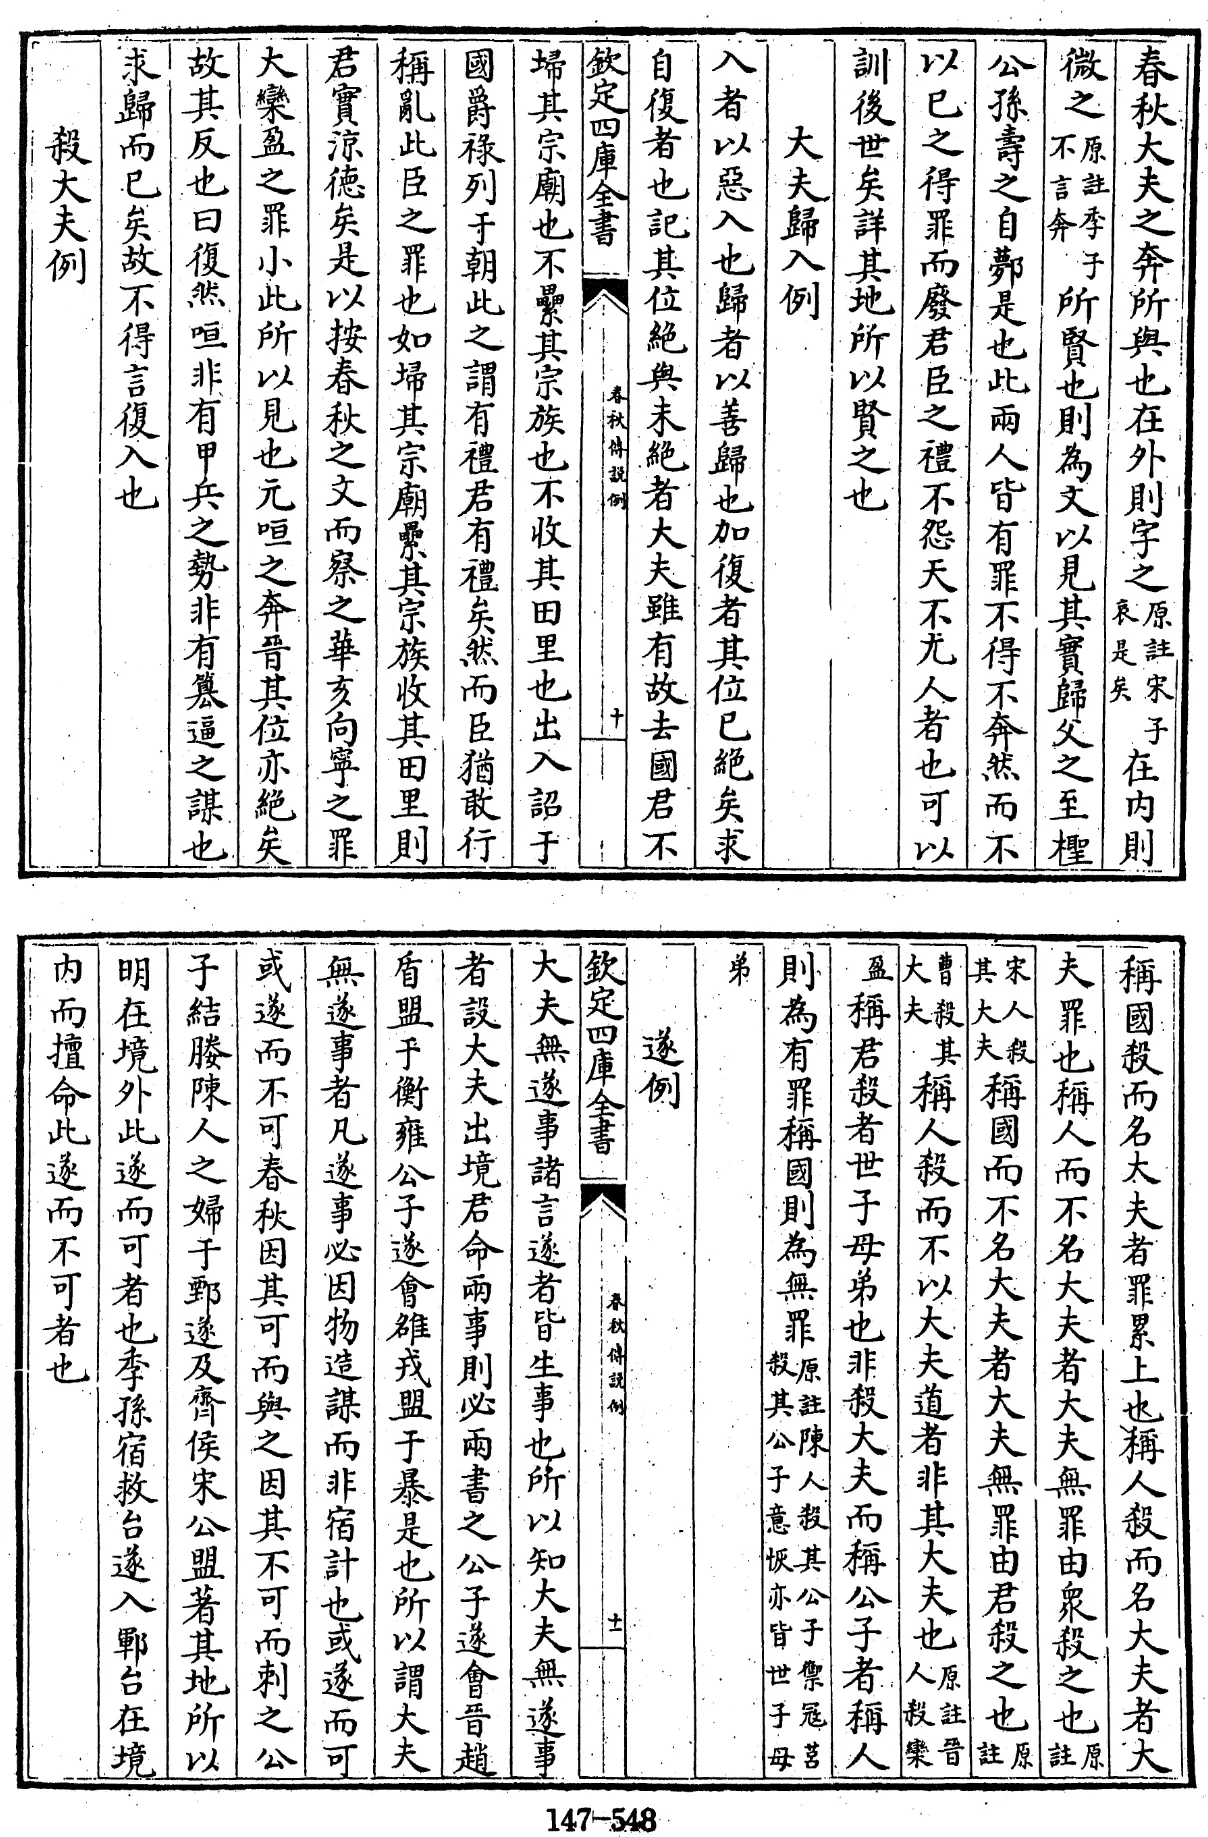 春秋大夫之奔所與也在外則字之原註宋子哀是矣在内則
微之原註季子不言奔所賢也則為文以見其實歸父之至檉
公孫壽之自鄸是也此兩人皆有罪不得不奔然而不
以已之得罪而廢君臣之禮不怨天不尤人者也可以
訓後世矣詳其地所以賢之也
大夫歸入例
入者以惡入也歸者以善歸也加復者其位已絶矣求
自復者也記其位絶與未絶者大夫雖有故去國君不
欽定四庫全書
春秋傳説例
十
埽其宗廟也不纍其宗族也不收其田里也出入詔于
國爵祿列于朝此之謂有禮君有禮矣然而臣猶敢行
稱亂此臣之罪也如埽其宗廟纍其宗族收其田里則
君實涼德矣是以按春秋之文而察之華亥向寧之罪
大欒盈之罪小此所以見也元咺之奔晉其位亦絶矣
故其反也曰復然咺非有甲兵之勢非有簒逼之謀也
求歸而已矣故不得言復入也
殺大夫例
稱國殺而名大夫者罪累上也稱人殺而名大夫者大
夫罪也稱人而不名大夫者大夫無罪由衆殺之也原註
宋人殺其大夫稱國而不名大夫者大夫無罪由君殺之也原註
曹殺其大夫稱人殺而不以大夫道者非其大夫也原註晉人殺欒
盈稱君殺者世子母弟也非殺大夫而稱公子者稱人
則為有罪稱國則為無罪原註陳人殺其公子禦寇莒殺其公子意恢亦皆世子母
弟
遂例
欽定四庫全書
春秋傳説例
十一
大夫無遂事諸言遂者皆生事也所以知大夫無遂事
者設大夫出境君命兩事則必兩書之公子遂會晉趙
盾盟于衡雍公子遂會雒戎盟于暴是也所以謂大夫
無遂事者凡遂事必因物造謀而非宿計也或遂而可
或遂而不可春秋因其可而與之因其不可而刺之公
子結媵陳人之婦于鄄遂及齊侯宋公盟著其地所以
明在境外此遂而可者也季孫宿救台遂入鄆台在境
内而擅命此遂而不可者也
147-548